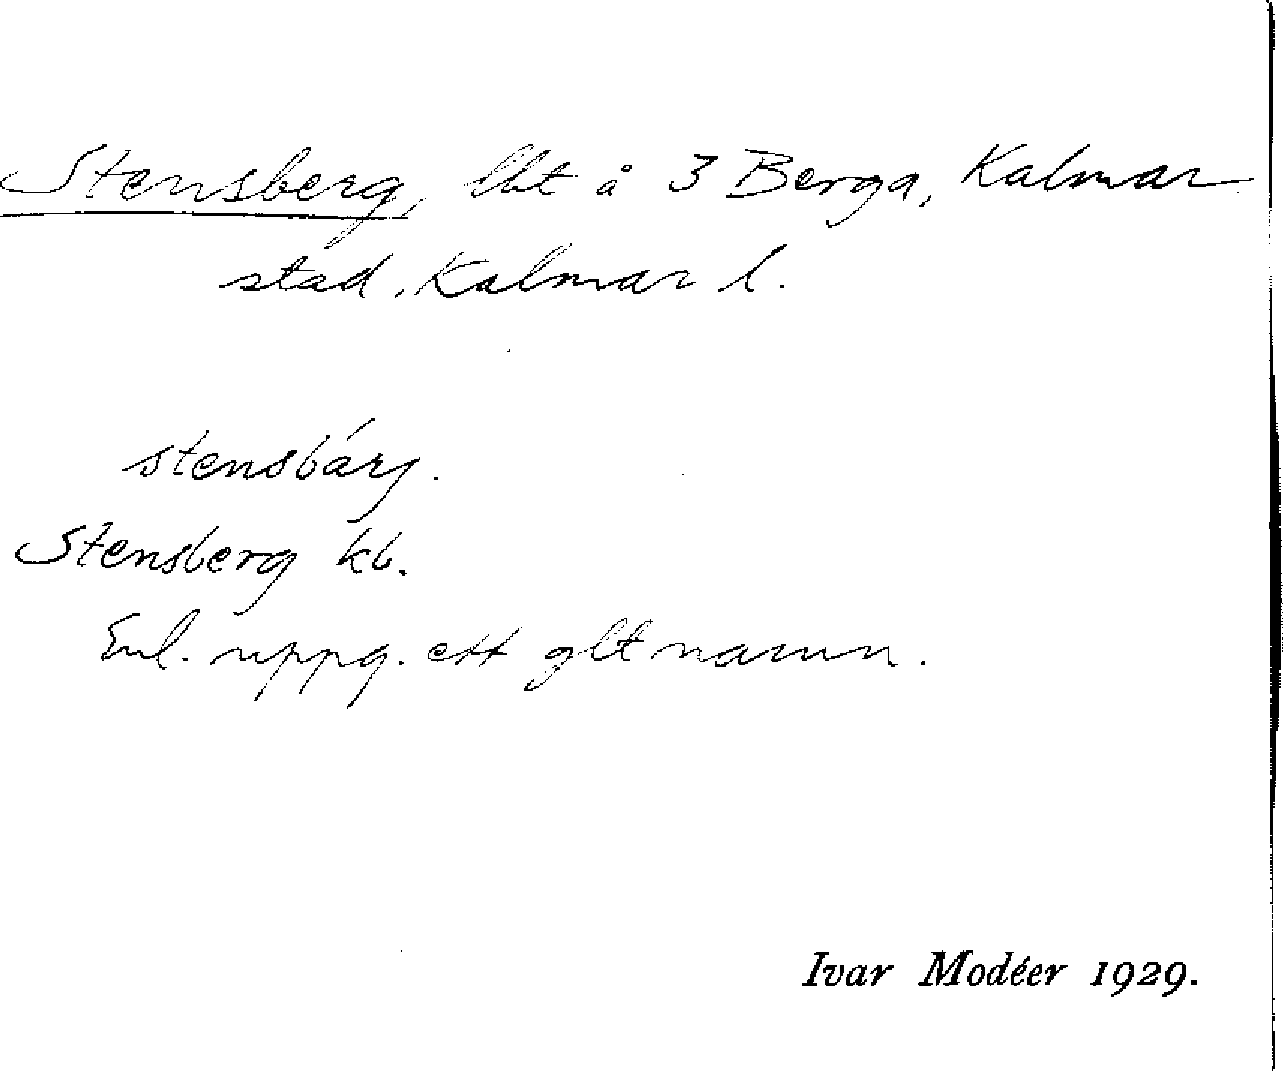 Stensberg, lht å 3 Berga, Kalmar
stad, Kalmar l.
stensbárj.
Stensberg kb.
Enl. uppg. ett glt namn.
Ivar Modéer 1929.